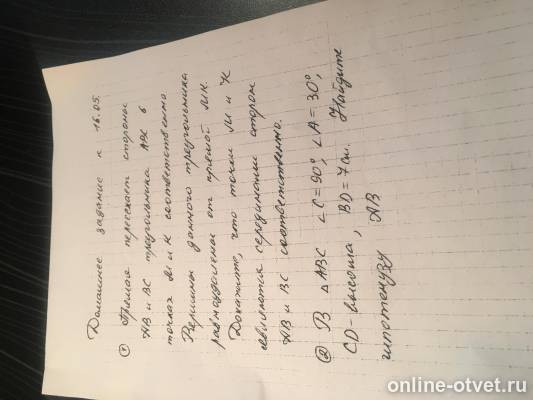 Домашнее задание к 16.05.
① Прямая пересекает стороны
АВ и ВС треугольника АВС в
точках М и К соответственно
Вершины данного треугольника
равноудалены от прямой МК.
Докажите, что точки М и К
являются серединами сторон
АВ и ВС соответственно.
② В △ АВС ∠С=90°, ∠А=30°,
CD-высота, BD=7см. Найдите
гипотенузу АВ
online-otvet.ru